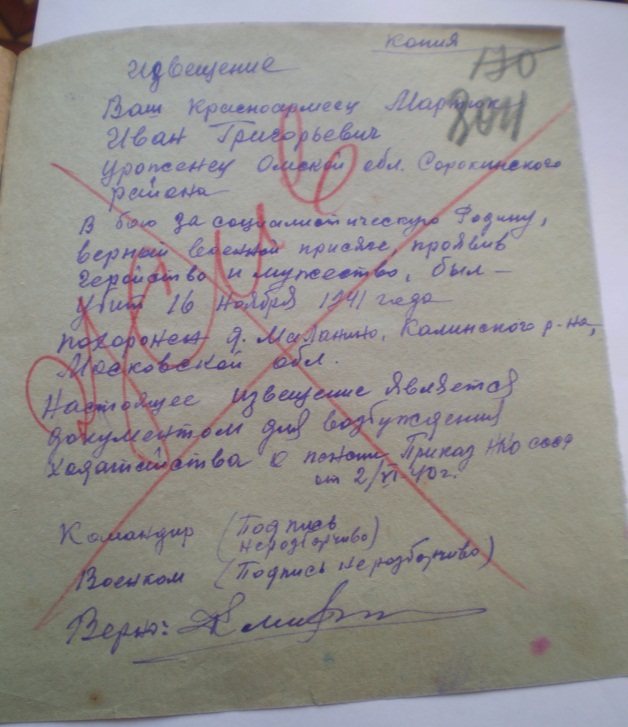 Копия
170
804
Извещение
Ваш Красноармеец Мартюк
Иван Григорьевич
уроженец Омской обл. Сорокинского
района
В бою за социалистическую Родину,
верный военной присяге, проявив
геройство и мужество, был –
убит 16 ноября 1941 года
похоронен д. Маланино, Калинского р-на,
Московской обл.
Настоящее извещение является
документом для возбуждения
ходатайства о пенсии Приказ НКО СССР
от 2/VI-40г.
Командир (Подпись
неразборчиво)
Военком (Подпись неразборчиво)
Верно: